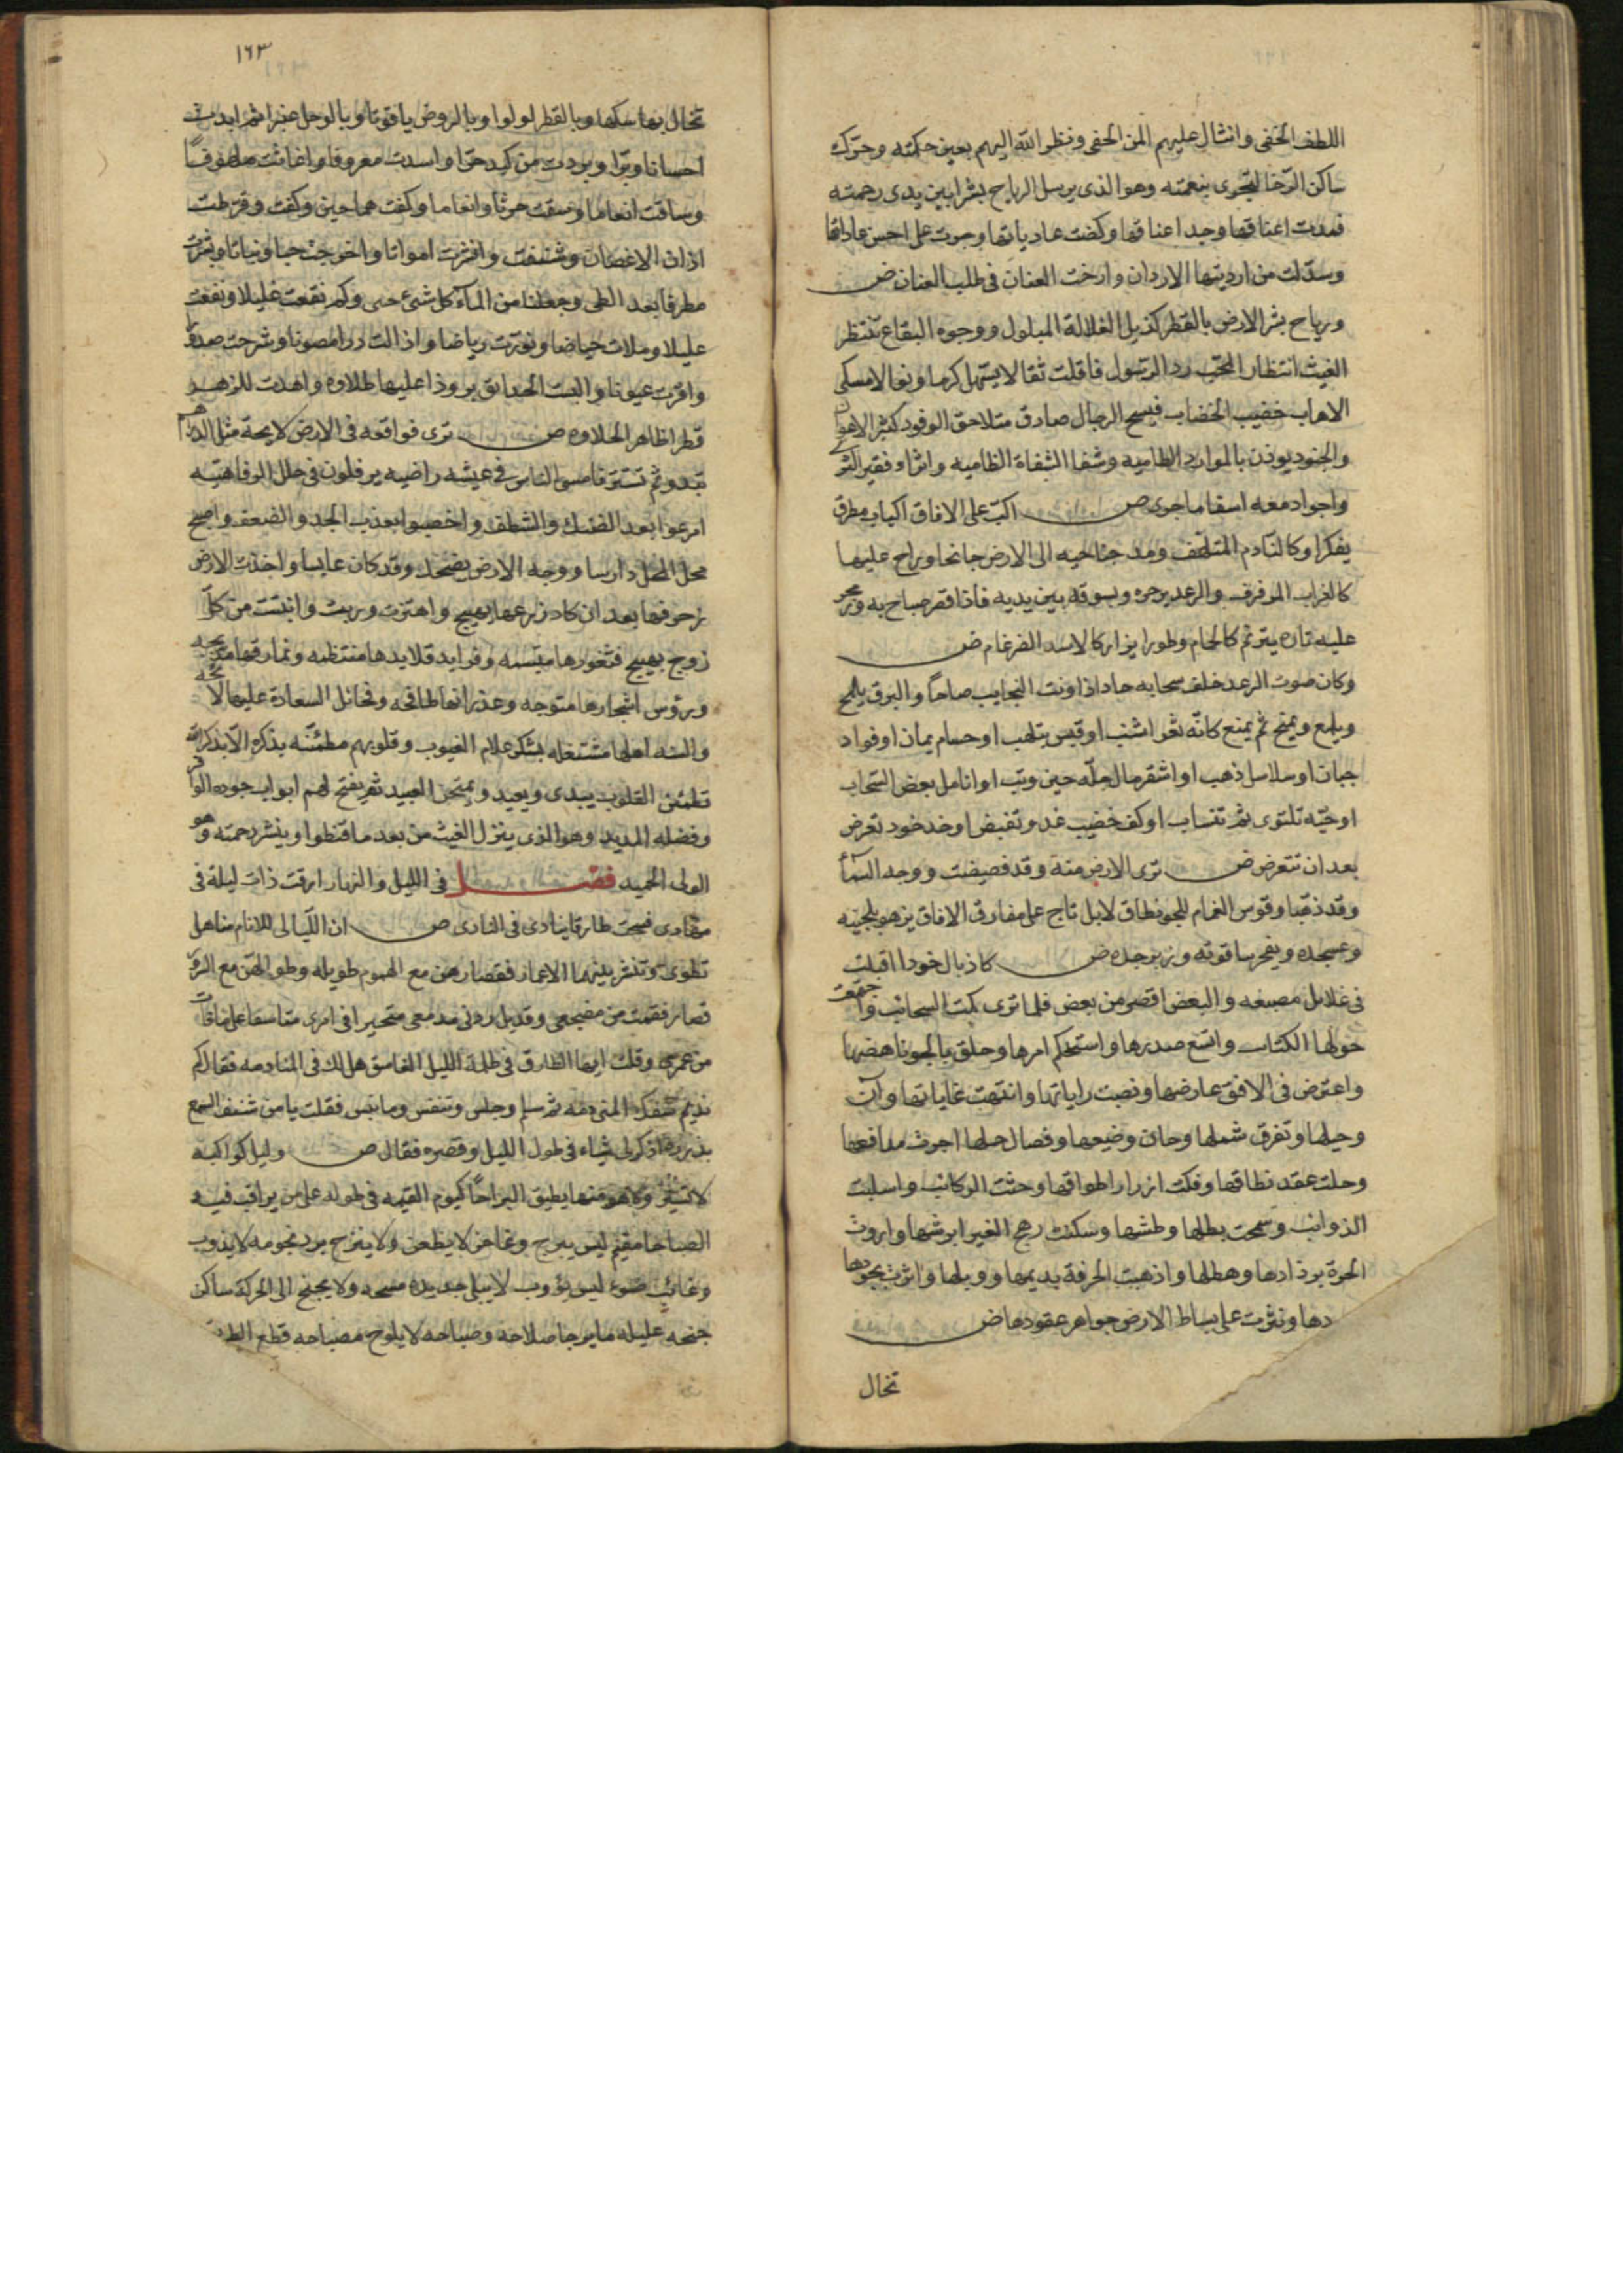 اللطف الخفى وانثال عليهم المن الحفى ونظر الله اليهم بعين حكمته وحرّك
ساكن الرّخا لتجرى بنعمته وهو الذى يرسل الرياح بشرا بين يدى رحمته
فمدت اعناقها وجد اعناقها وركضت عادياتها وجرت على احسن عاداتها
وسدلت من ارديتها الاردان وارخت العنان فى طلب العنان ض
ورياح بشر الارض بالقطر كذيل الغلالة المبلول ووجوه البقاع تنتظر
الغيث انتظار المحب رد الرسول فاقلت ثقالا يستهل كرما
الاهاب خضيب الخضاب فسيح الرجال صادق متلاحق الوفود كثير
والجنود يوذن بالموارد الطاميه وشفا الشفاة الظاميه
واجواد معه اسقاما جوى ص اكب على الافاق اكباب مطرق
يفكر او كالنادم المتلهف ومد جناحيه الى الارض جانحا وراح عليها
كالغراب المرفرف والرعد يزجره ويسوقه بين يديه فاذا قصر صاح به وزمجر
عليه تاره يترنم كالحمام وطورا يزار كالاسد الضرغام ض
وكان صوت الرعد خلف سحابه حاد اذا ونت النجايب صاحا والبرق يلمح
ويلمع ويمنح ثم يمنع كانّه ثغر اشنب او قبس يتلهب او حسام يمان او فواد
جبان او سلاسل ذهب او اشقر مال جلّه حين وثب او انامل بعض السحاب
او حيّه تلتوى ثم تنساب او كف خضيب غدو تقبض او خد خود تعرض
بعد ان تتعرض ض ترى الارض منه وقد فضضت ووجه السمآ
وقد ذهّبا وقوس الغمام للجو نطاق لابل تاج على مفارق الافاق يزهو بلجينه
وعسجده ويفخر بياقوته وزبرجده ض كاذيال خود اقبلت
فى غلايل مصبغه والبعض اقصر من بعض فلما ترى كبت السحائب واجتمعت
حولها الكتائب واتسع صدرها واستحكم امرها وحلق بالجو ناهضها
واعترض فى الافق عارضها ونصبت راياتها وانتهت غاياتها وآن
رحيلها وتفرق شملها وحان وضيعها وفصال حملها اجرت مدافعها
وحلت عقد نطاقها وفكت ازرار اطواقها وحثت الركائب واسبلت
الذوائب وسمحت بطلها وطشها وسكنت رهج الغبرا برشها واروت
الحرة برذاذها وهطلها واذهبت الحرفة بديمها ووبلها واثرت بجودها
دها ونثرت على بساط الارض جواهر عقودها ض
تخال
١٦٣
تخال بها مسكها وبالقطر لولوا وبالروض ياقوتا وبالوحل عنبرا ثم ابدت
احسانا وبرّا وبردت من كبد حرّا واسدت معروفا واغاثت ملهوفًا
وساقت انعاما وسقت حرثا وانعاما وكفت هما حين وكفت وقرطت
اذان الاغصان وشنفت وانشرت امواتا واخرجت حبا ونباتا ونشرت
مطرفا بعد الطى وجعلنا من المآء كل شئ حى وكم نقعت غليلا ونفعت
عليلا وملات حياضا ونورت رياضا واذالت دررا مصونا وشرحت صدورا
واقرت عيونا والبست الحدايق برودا عليها طلاوه واهدت للزهر
قطرا ظاهر الحلاوه ص ترى فواقعه فى الارض لايحة مثل الدراهم
تبدو ثم تستتر فامسى الناس فى عيشه راضيه يرفلون فى حلل الرفاهيّه
امرعوا بعد الضنك والشظف واخصبوا بعذب الجد والضعف واصبح
محل المحل دارسا ووجه الارض يضحك وقد كان عابسا واخذت الارض
زخرفها بعد ان كاد زرعها يهيج واهتزت وربت وانبتت من كلّ
زوج بهيج فثغورها مبتسمه وفرايد قلايدها منتظمه ونمارقها
وروس اشجارها متوجه وغدرانها طافحه ومخائل السعادة عليها لائحه
والسنه اهلها مشتغله بشكر علام الغيوب وقلوبهم مطمئنّه بذكره الا بذكر الله
تطمئن القلوب يبدى ويعيد ويمتحن العبيد ثم يفتح لهم ابواب جوده الوافر
وفضله المديد وهو الذى ينزل الغيث من بعد ما قنطوا وينشر رحمته وهو
الولى الحميد فصل فى الليل والنهار ارقت ذات ليلة فى
مهادى فسمعت طارقا ينادى فى النادى ص ان الليالى للانام مناهل
تطوى وتنشر بينها الاعمار فقصارهن مع الهموم طويله وطوالهن مع السرور
قصار فقمت من مضجعى وقد بل ردنى مدمعى متحيرا فى امرى متاسفا على ما فات
من عمرى وقلت ايها الطارق فى ظلمة الليل الغاسق هل لك فى المنادمه فقال كم
نديم سفك المنى دمه ثم سلم وجلس وتنفس وما نبس فقلت يا من شنف السمع
بدرره اذكر لى شياء فى طول الليل وقصره فقال ص وليل كواكبه
لا تسير ولا هو منها يطيق البراحا كيوم القيمه فى طوله على من يراقب فيه
الصباحا مقيم ليس يبرح وغاض لا يظعن ولا ينزح برد نجومه لا يذوب
وغائب ضوء ليس يؤوب لا يبلى جديده مسحه ولا يجنح الى الحركة ساكن
جنحه عليله ما يرجا صلاحه وصباحه لا يلوح مصباحه قطع